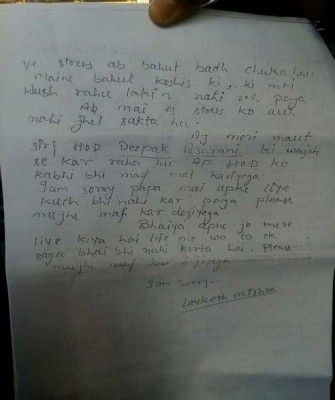 ye stress ab bahut badh chuka hai
Maine bahut koshis ki, ki mai
khush rahu lakin nahi reh paya
Ab mai es stress ko aur
nahi jhel sakta hu.
Aj meri maut
sirf HOD Deepak ki wajah
se kar raha hu Ap HOD ko
kabhi bhi maf mat kariyega
Iam sorry papa mai apke liye
kuch bhi nahi kar paya please
mujhe maf kar dejiyega
Bhaiya apne jo mere
live kiya hai life me wo to ek
saga bhai bhi nahi kirta hai. Please
mujhe maf kar
Iam sorry...